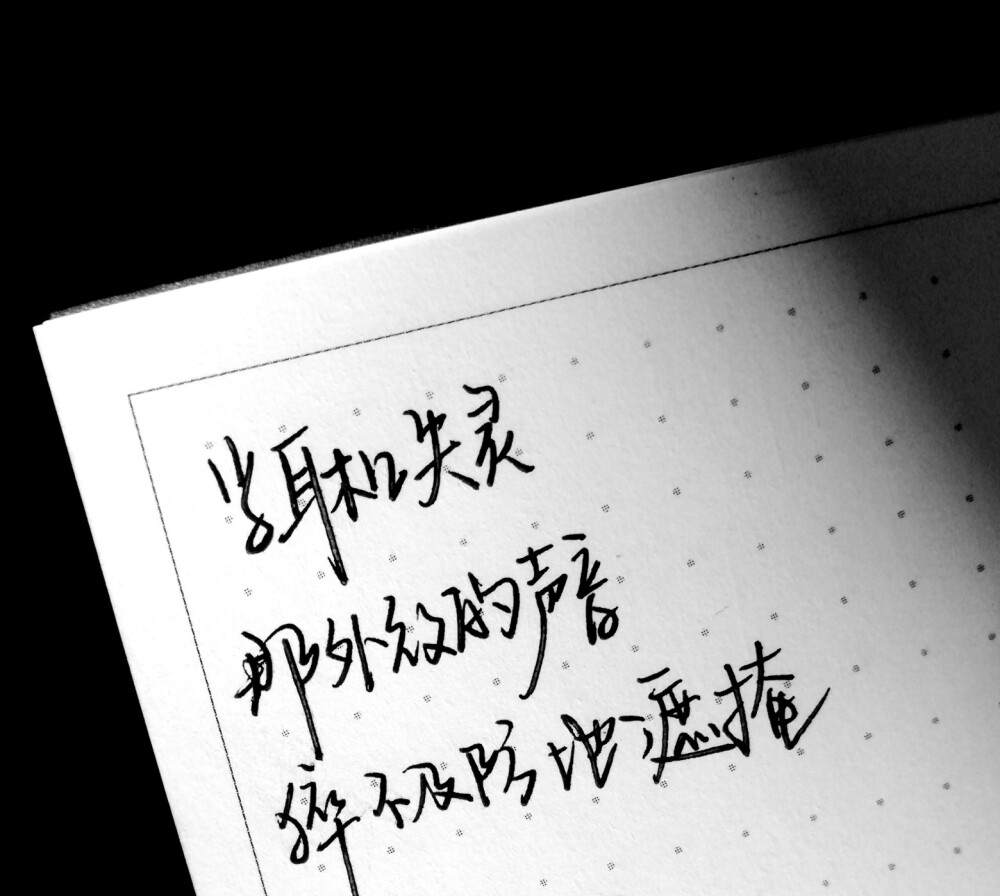 当耳机失灵
那外放的声音
猝不及防地遮掩